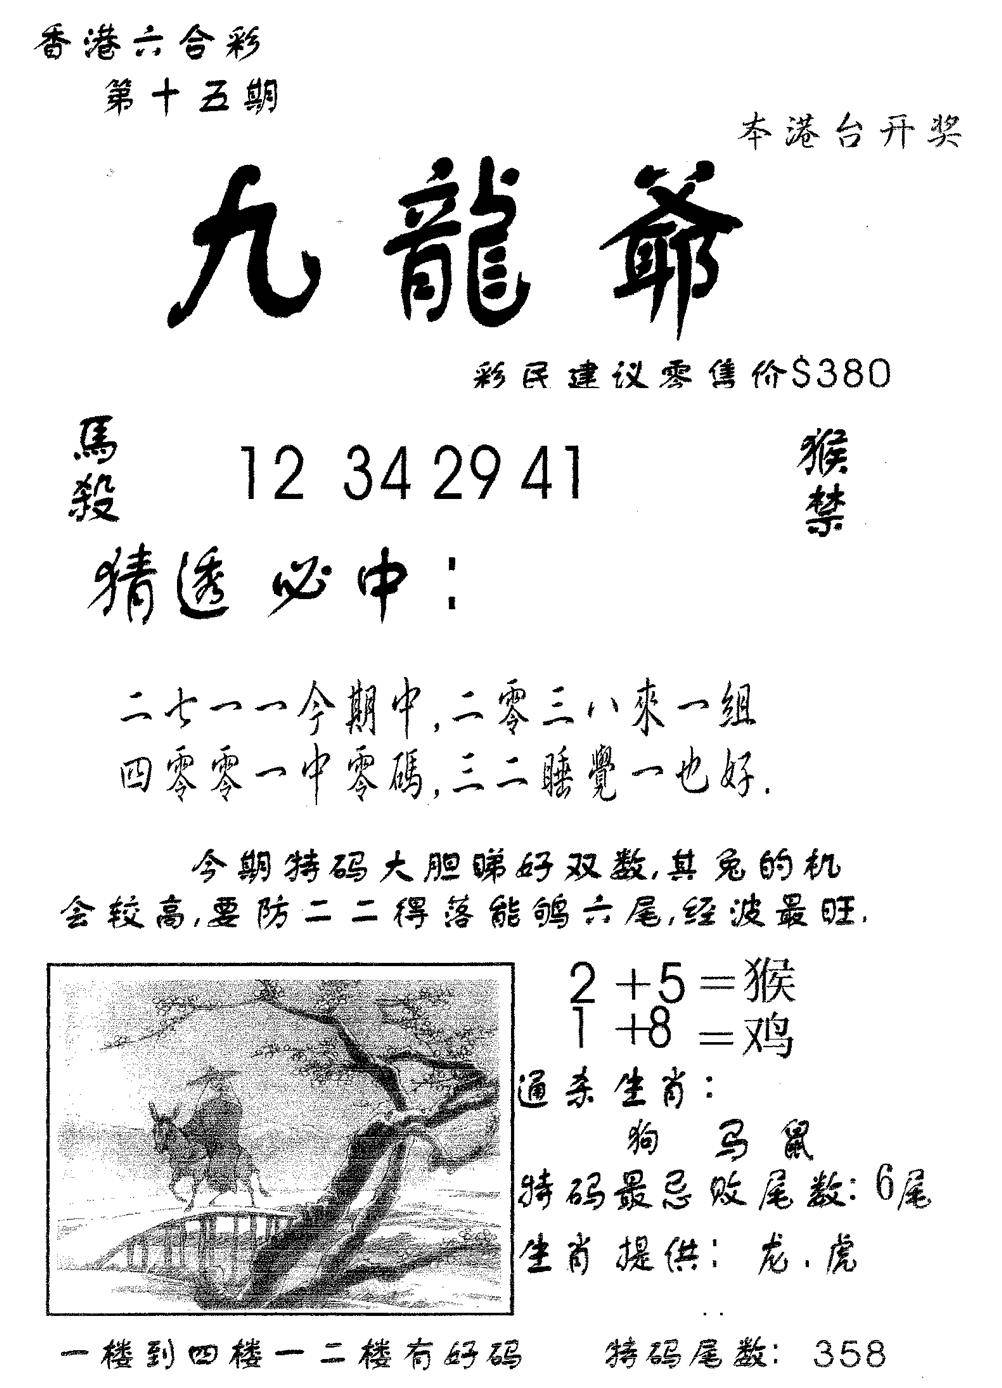 香港六合彩
第十五期
本港台开奖
九龍爺
彩民建议零售价$380
馬殺
12 34 29 41
猴禁
猜透必中：
二七一一今期中,二零三八來一組
四零零一中零碼,三二睡覺一也好.
今期特码大胆睇好双数,其兔的机
会较高,要防二二得落能鸲六尾,经波最旺.
2+5=猴
1+8=鸡
通杀生肖：
狗 马 鼠
特码最忌败尾数：6尾
生肖提供：龙.虎
一楼到四楼一二楼有好码
特码尾数：358